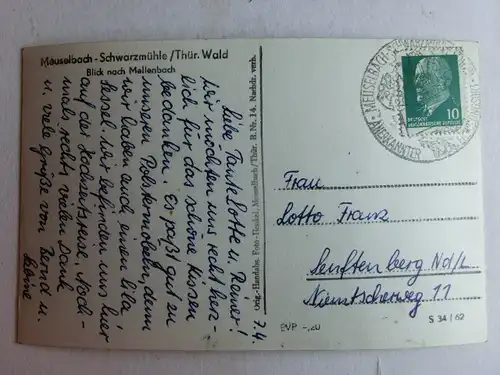 Meuselbach - Schwarzmühle / Thür. Wald
Blick nach Mellenbach
7.4.
Liebe Tante Lotte u. Reiner!
Wir möchten uns recht herz-
lich für das schöne Kissen
bedanken. Es paßt gut zu
unseren Polstermöbeln, denn
wir haben auch einen lila
Sessel. Wir befinden uns hier
auf der Hochzeitsreise. Noch-
mals recht vielen Dank
u. viele Grüße von Bernd u.
Sabine
Orig.-Handabz. Foto-Tenkel, Meuselbach/Thür. B. Nr. 14. Nachdr. verb.
MEUSELBACH-SCHWARZMÜHLE
ANERKANNTER
10
DEUTSCHE
DEMOKRATISCHE REPUBLIK
Frau
Lotto Franz
Senftenberg Nd/L
Niemtscherweg 11
EVP -,20
S 34 / 62